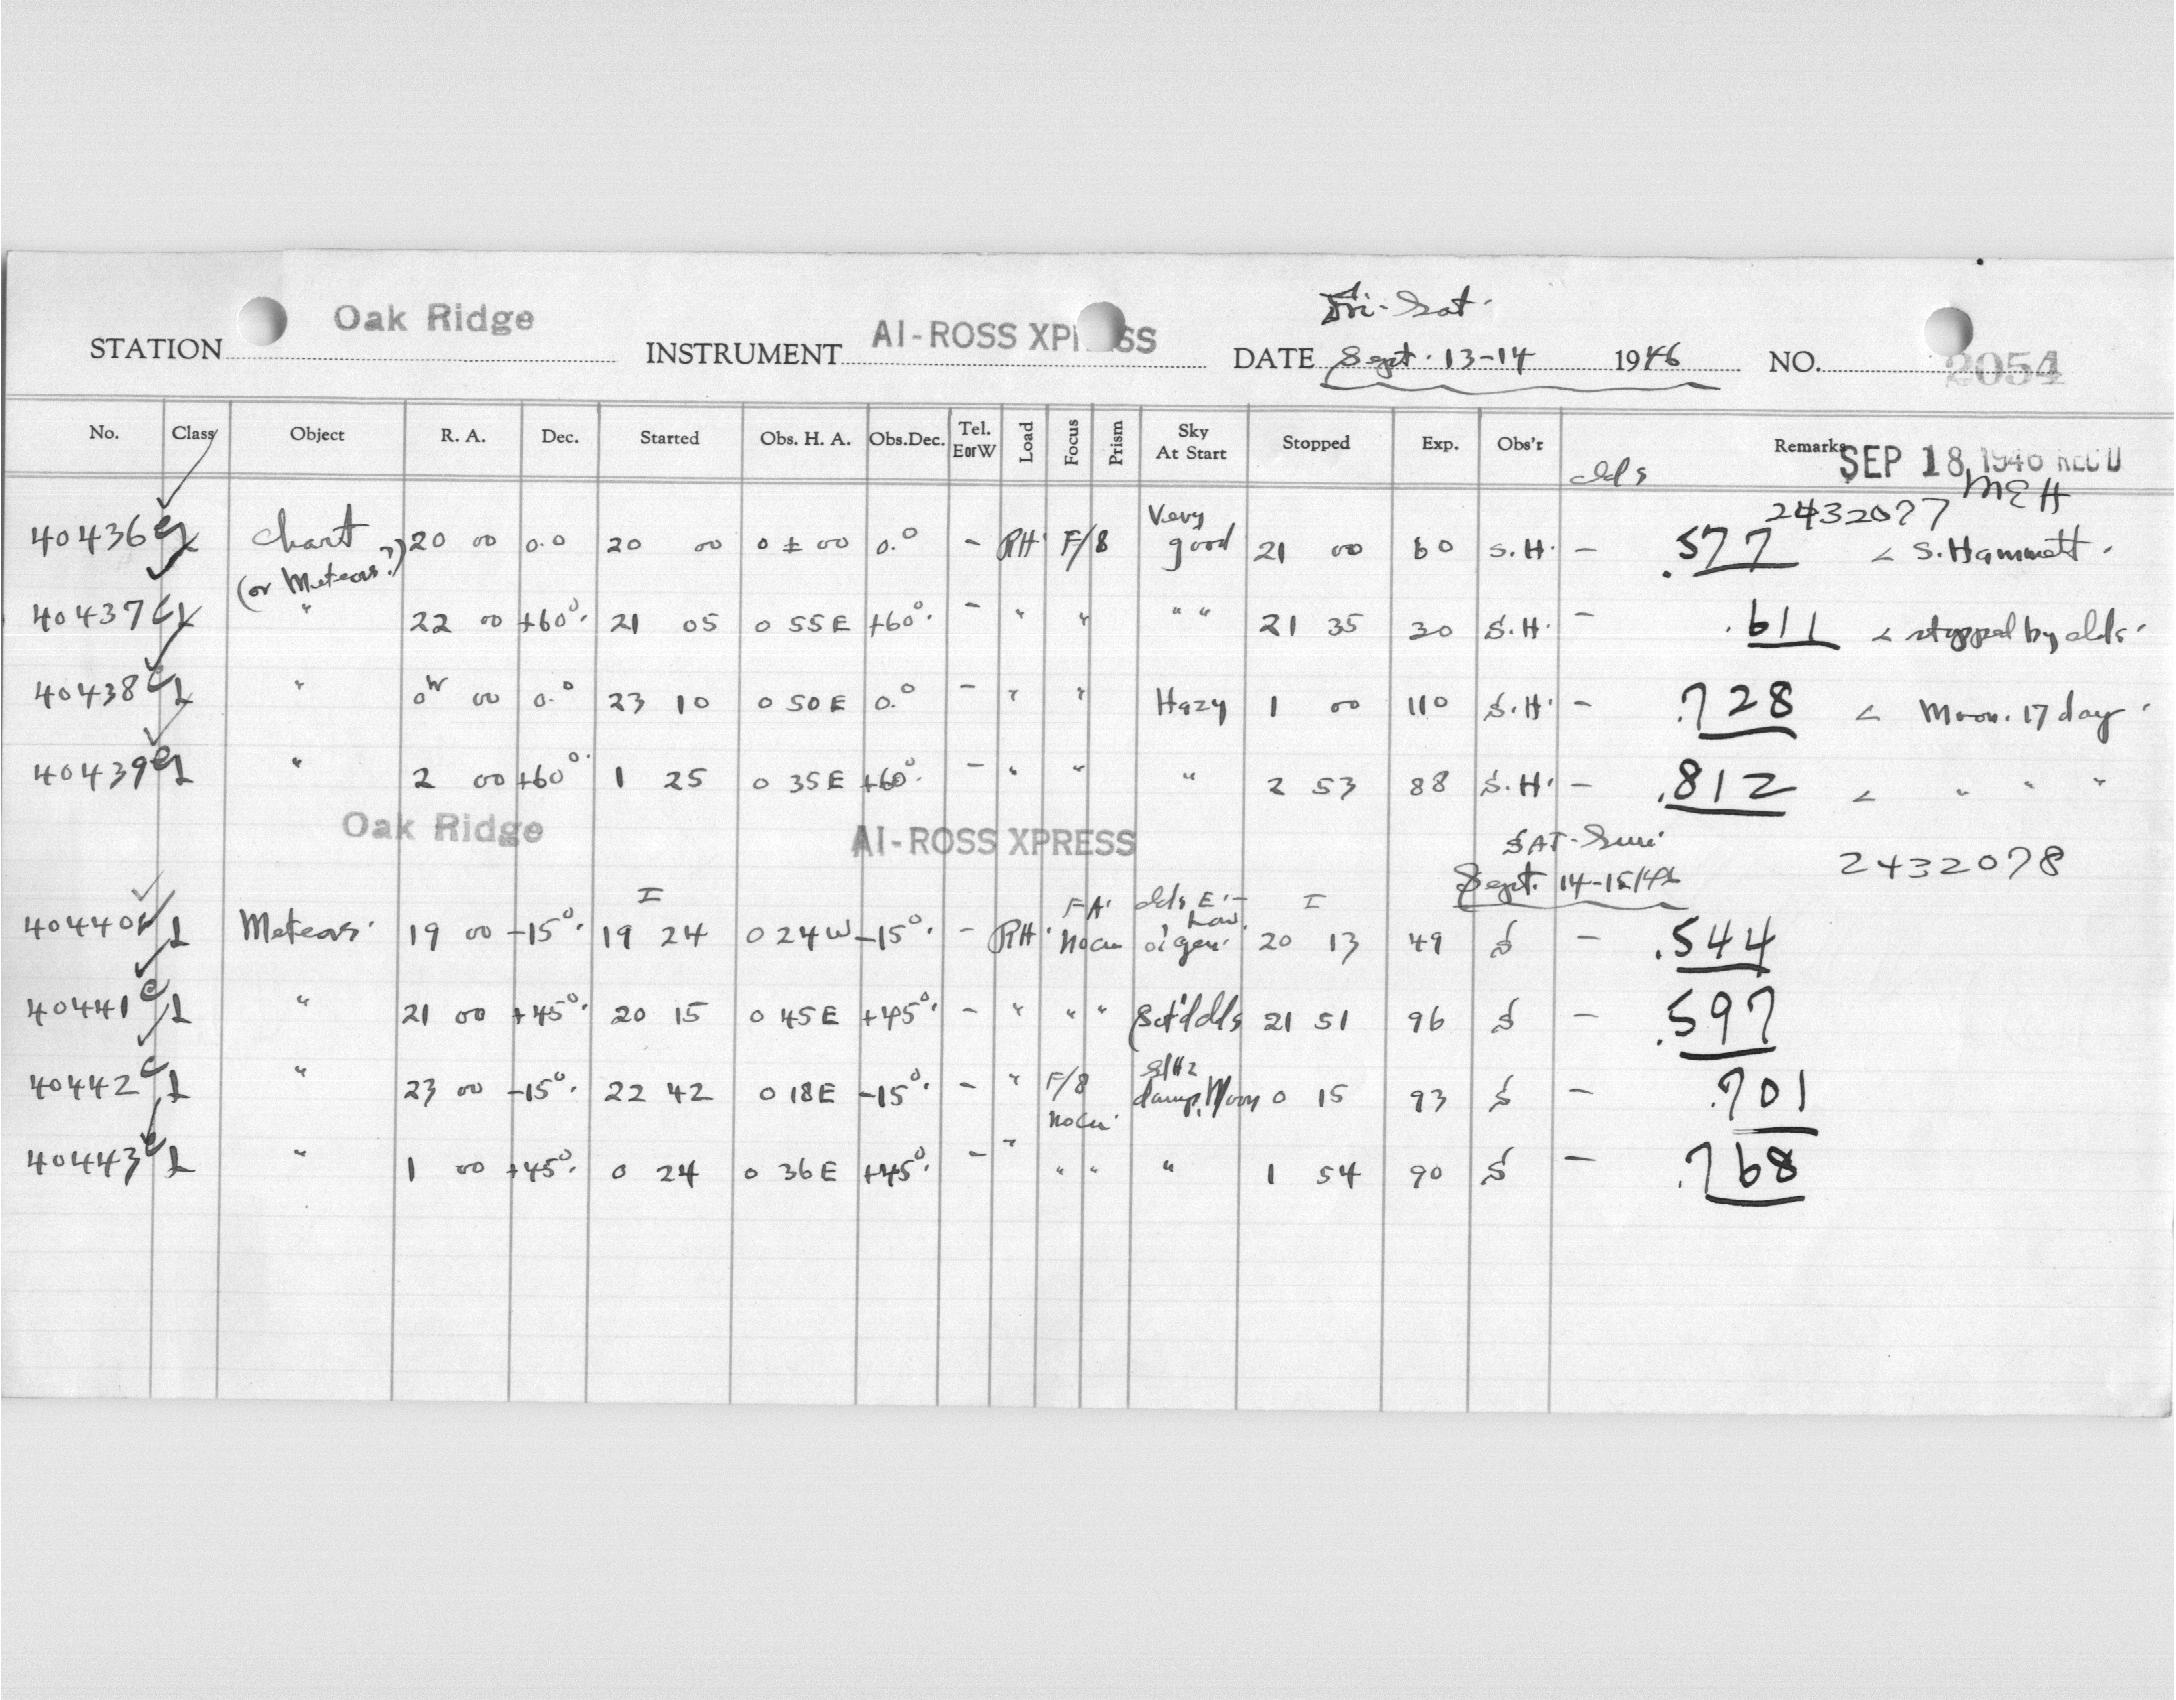 Fri-Sat.
STATION Oak Ridge INSTRUMENT AI-ROSS XP SS DATE Sept. 13-14 1946 NO. 2054
No. Class Object R. A. Dec. Started Obs. H. A. Obs.Dec. Tel. EorW Load Focus Prism Sky At Start Stopped Exp. Obs'r Remarks
SEP 18 1946 REC'D
clds MEH
2432077
40436 L Chart 20 00 0.0 20 00 0 ± 00 0.° - RH F/8 Very good 21 00 60 S.H. - .577 < S. Hammett.
(or Meteors?)
40437 L " 22 00 +60°. 21 05 0 55 E +60°. - " " " " 21 35 30 S.H. - .611 < stopped by clds.
40438 L " 0 00 0.° 23 10 0 50 E 0.° - " " Hazy 1 00 110 S.H. - .728 < Moon. 17 day.
40439 L " 2 00 +60°. 1 25 0 35 E +60°. - " " " 2 53 88 S.H. - .812 < " " "
Oak Ridge AI-ROSS XPRESS SAT-Sun.
Sept. 14-15/46 2432078
I I
40440 L Meteors. 19 00 -15°. 19 24 0 24 W -15°. - RH. clds E.- Low 20 13 49 S - .544
40441 L " 21 00 +45°. 20 15 0 45 E +45°. - " " " Sct'd clds 21 51 96 S - .597
40442 L " 23 00 -15°. 22 42 0 18 E -15°. - " F/8 damp, Moon 0 15 93 S - .701
40443 L " 1 00 +45°. 0 24 0 36 E +45°. - " " " " 1 54 90 S - .768